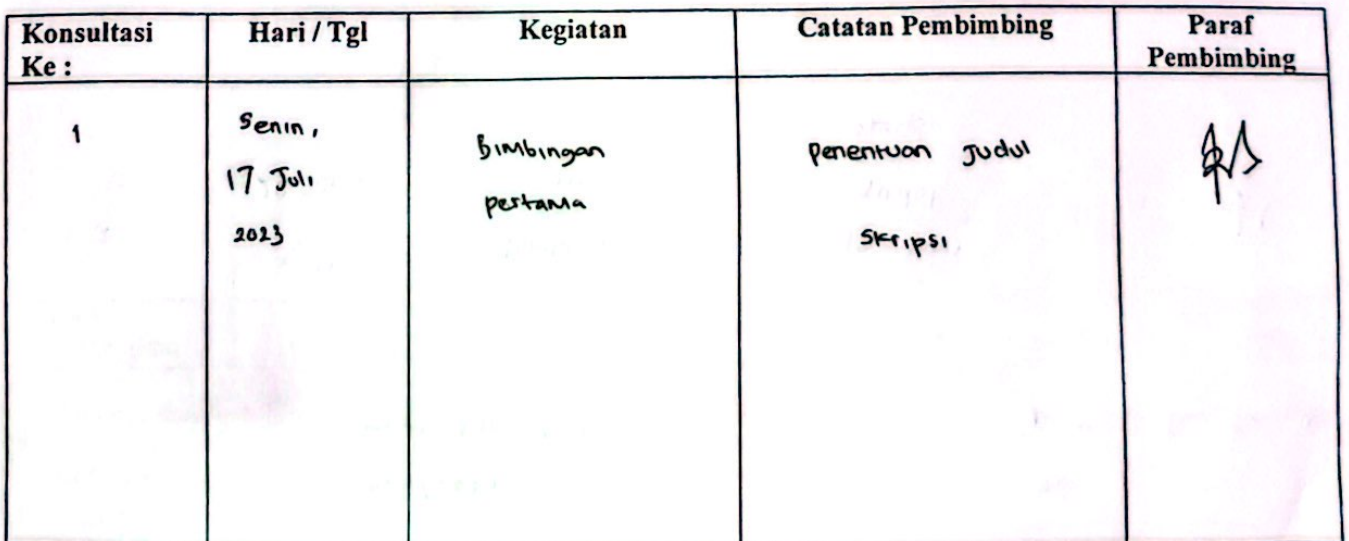 Konsultasi Ke :
Hari / Tgl
Kegiatan
Catatan Pembimbing
Paraf Pembimbing
1
Senin,
17 Juli
2023
Bimbingan
pertama
Penentuan Judul
Skripsi